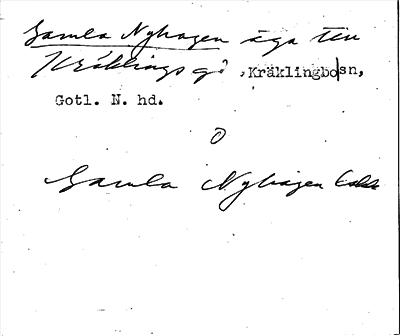 Gamla Nyhagen äga till
Kräklings gd, Kräklingbo sn,
Gotl. N. hd.
O
Gamla Nyhagen